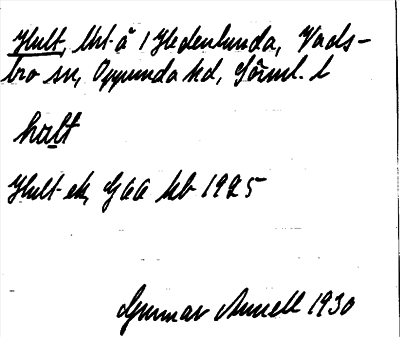 Hult, lht å 1 Hedenlunda, Vads-
bro sn, Oppunda hd, Sörml. l
halt
Hult ek, GEG kb 1925
Gunnar Annell 1930